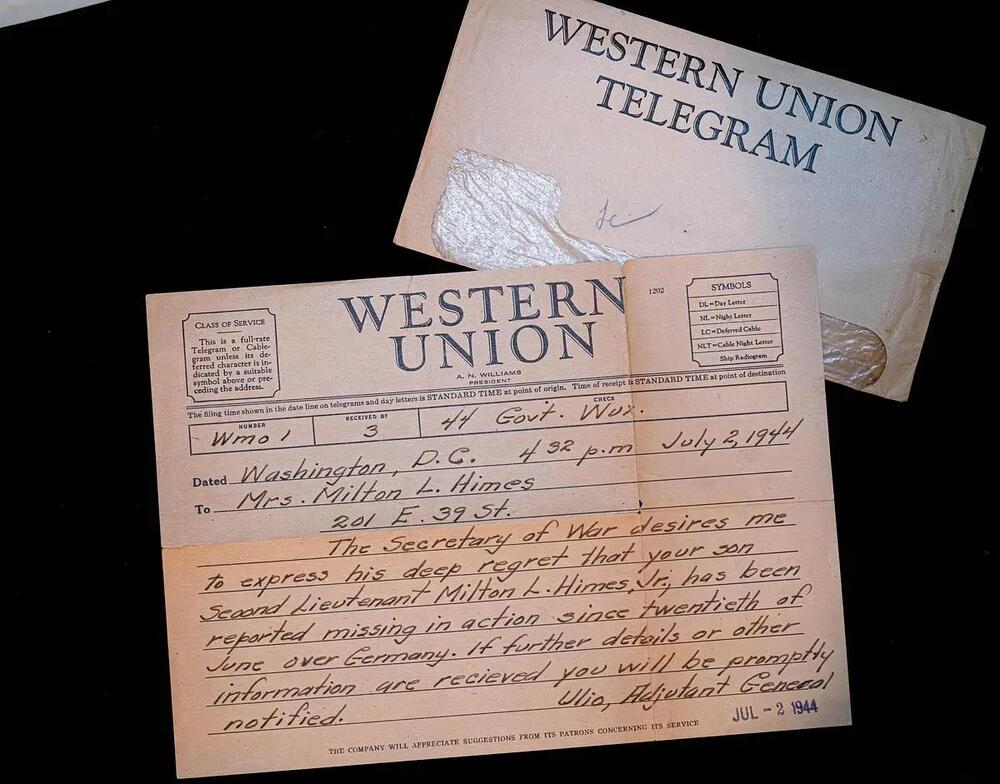 WESTERN UNION
TELEGRAM
WESTERN
UNION
1202
A. N. WILLIAMS
PRESIDENT
CLASS OF SERVICE
This is a full-rate
Telegram or Cable-
gram unless its de-
ferred character is in-
dicated by a suitable
symbol above or pre-
ceding the address.
SYMBOLS
DL=Day Letter
NL=Night Letter
LC=Deferred Cable
NLT=Cable Night Letter
Ship Radiogram
The filing time shown in the date line on telegrams and day letters is STANDARD TIME at point of origin. Time of receipt is STANDARD TIME at point of destination
NUMBER RECEIVED BY CHECK
Wmo 1 3 44 Govt. Wux.
Dated Washington, D.C. 4 32 p.m July 2, 1944
To Mrs. Milton L. Himes
201 E. 39 St.
The Secretary of War desires me
to express his deep regret that your son
Second Lieutenant Milton L. Himes, Jr., has been
reported missing in action since twentieth of
June over Germany. If further details or other
information are recieved you will be promptly
notified. Ulio, Adjutant General
JUL - 2 1944
THE COMPANY WILL APPRECIATE SUGGESTIONS FROM ITS PATRONS CONCERNING ITS SERVICE